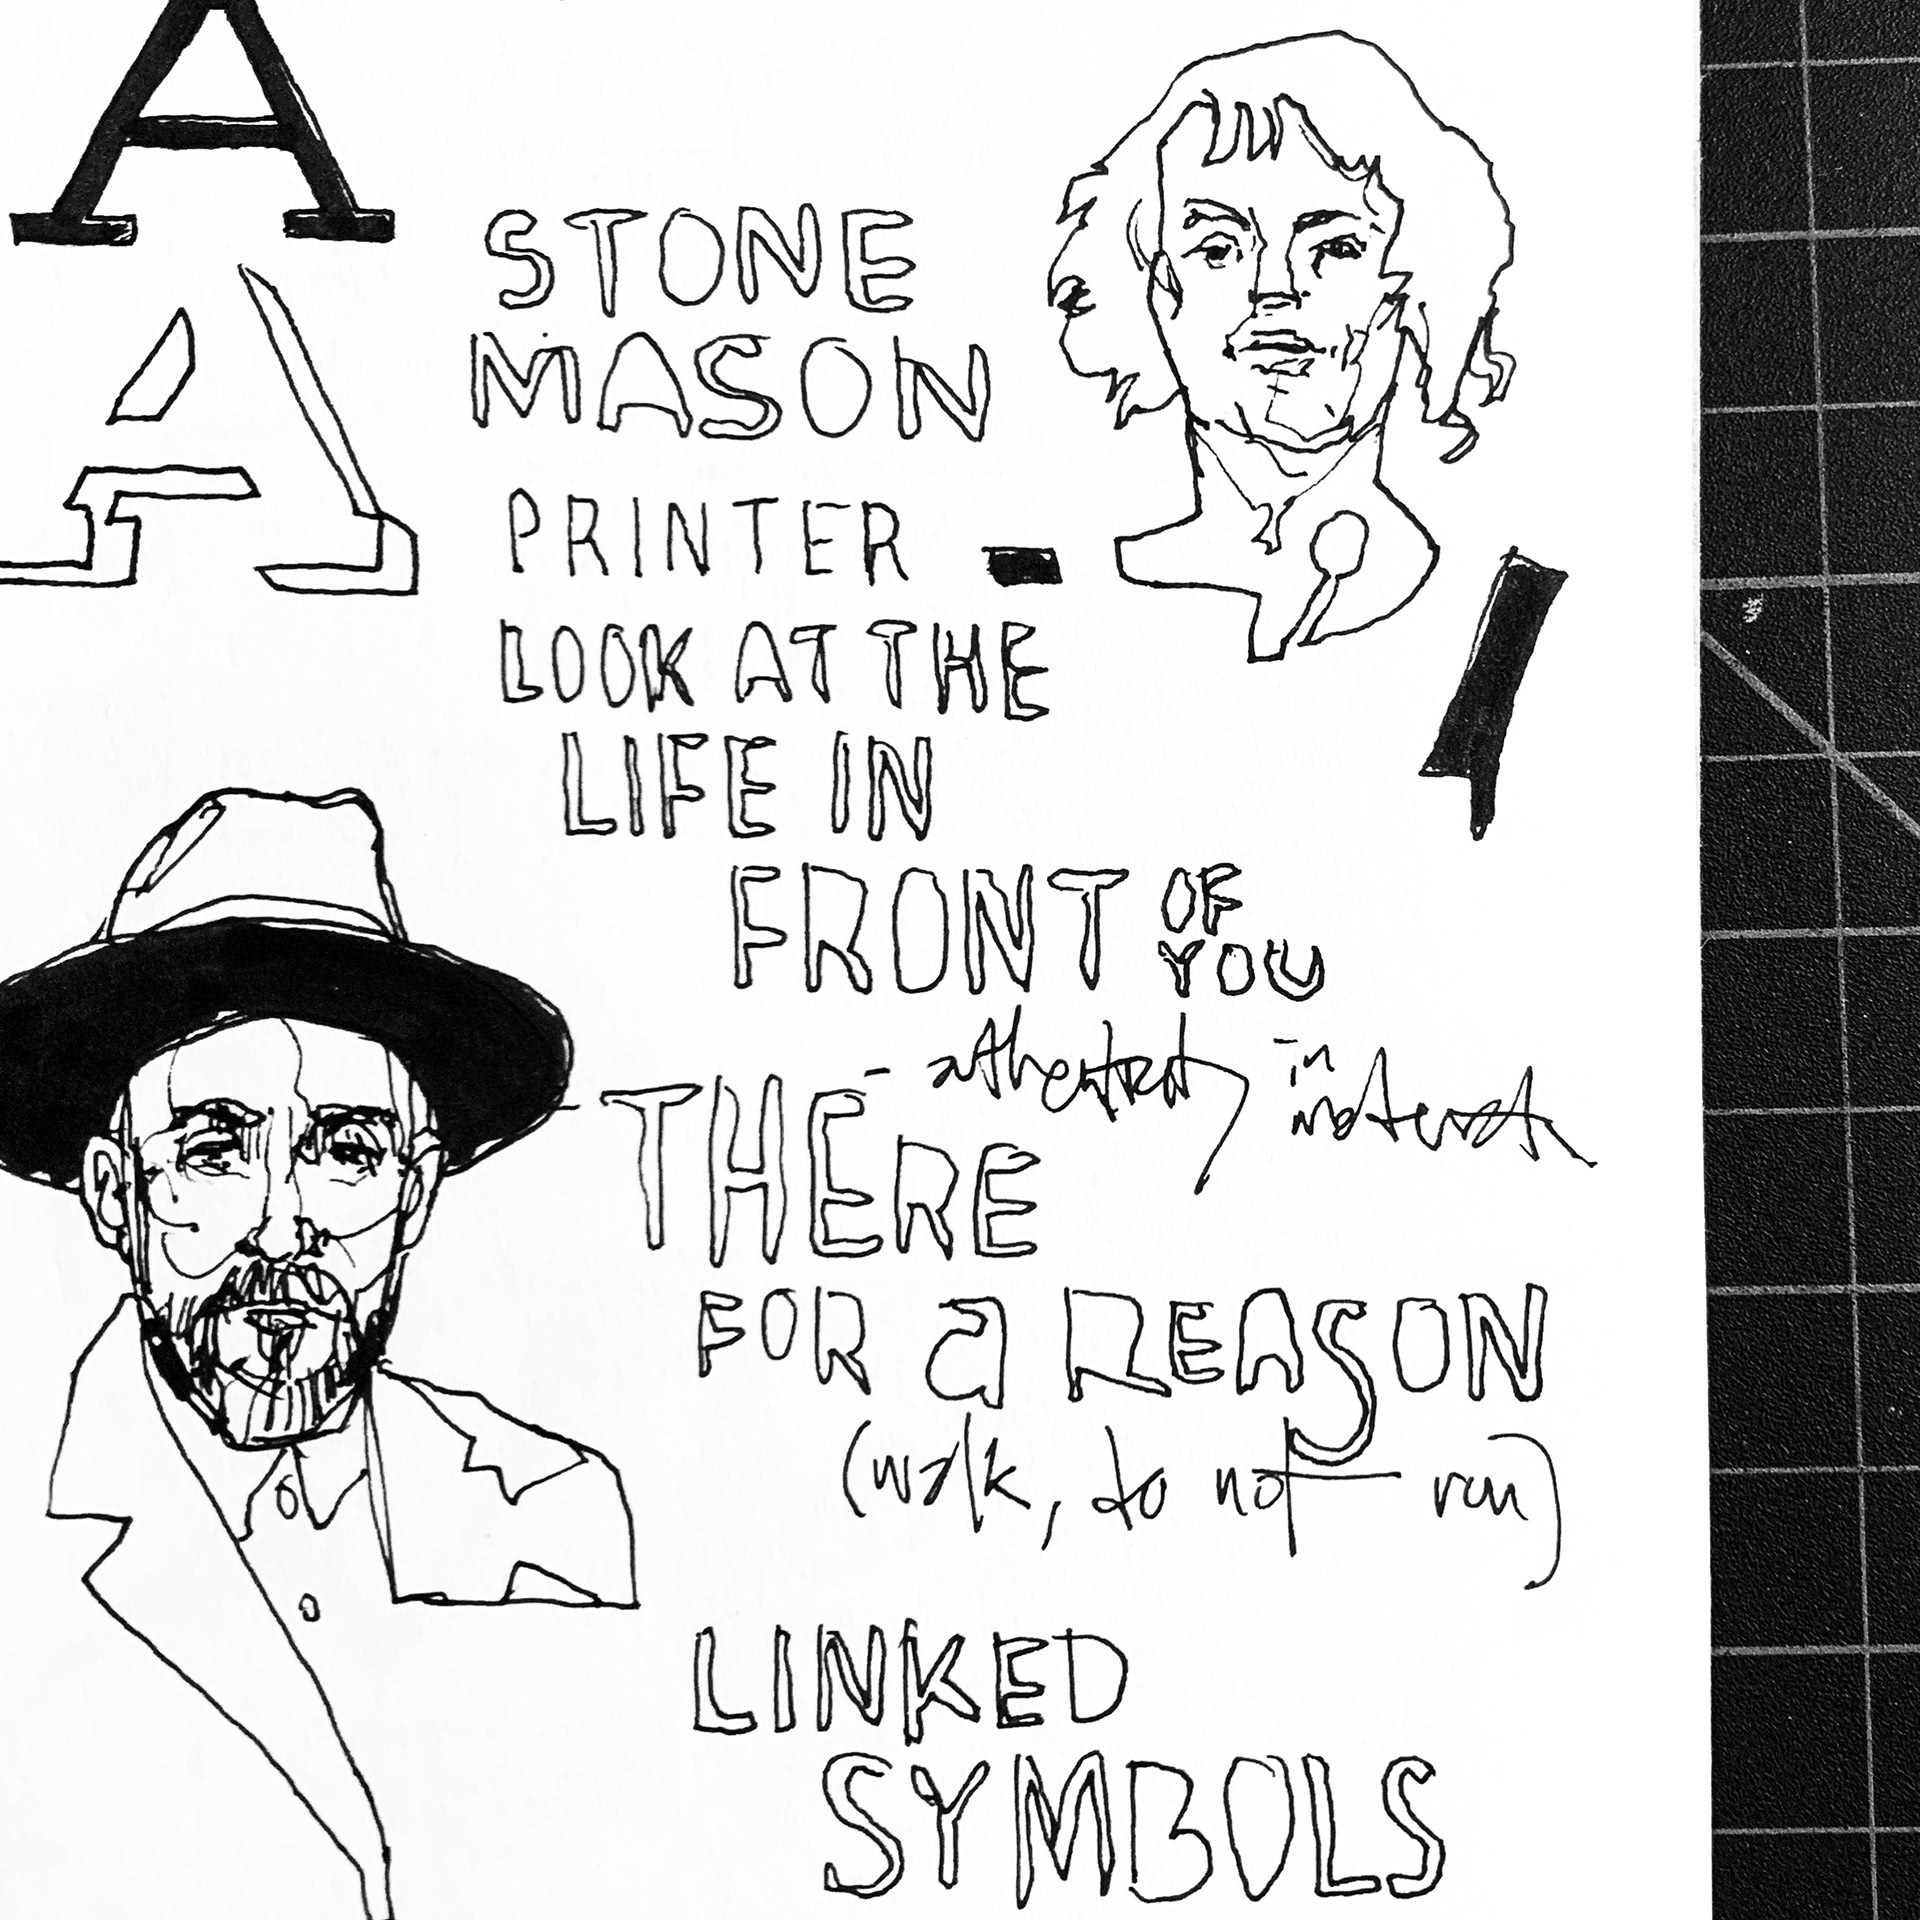 A
A
STONE
MASON
PRINTER
LOOK AT THE
LIFE IN
FRONT OF
YOU
- authenticity in
materials
THERE
FOR a REASON
(walk, do not run)
LINKED
SYMBOLS